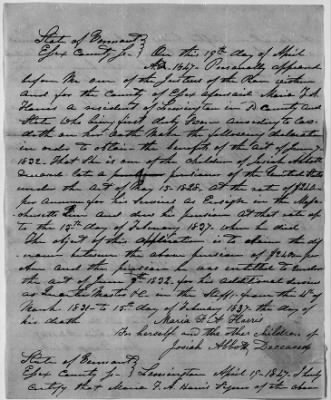 State of Vermont }
Essex County Ss } On this 19th day of April
A.D. 1847. Personally appeared
before me one of the Justices of the Peace within
and for the County of Essex aforesaid Maria F. A.
Harris a resident of Lemington in County and
State Who being first duly Sworn according to Law
doth on her oath make the following declaration
in order to obtain the benefits of the Act of
1832. That She is one of the children of Josiah Abbott
Deceased late a pensioner of the United States
under the Act of May 15 1828. At the rate of $240
per annum for his services as Ensign in the Massa
chusetts Line and drew his pension at that rate up
to the 15th day of February 1837. when he died
The object of this Application is to claim the dif
erance between the above pension of $240 per
Ann and the pension he was entitled to under
the act of June 7th 1832. for his additional services
as Quarter Master &C. in the Staff. from the 4th of
March 1831 to 15th day of February 1837 the day of
his death Maria F. A. Harris
For herself and the other children of
Josiah Abbott, Deceased
State of Vermont }
Essex County Ss } Lemington April 19. 1847. I hereby
Certify that Maria F. A. Harris Signer of the above